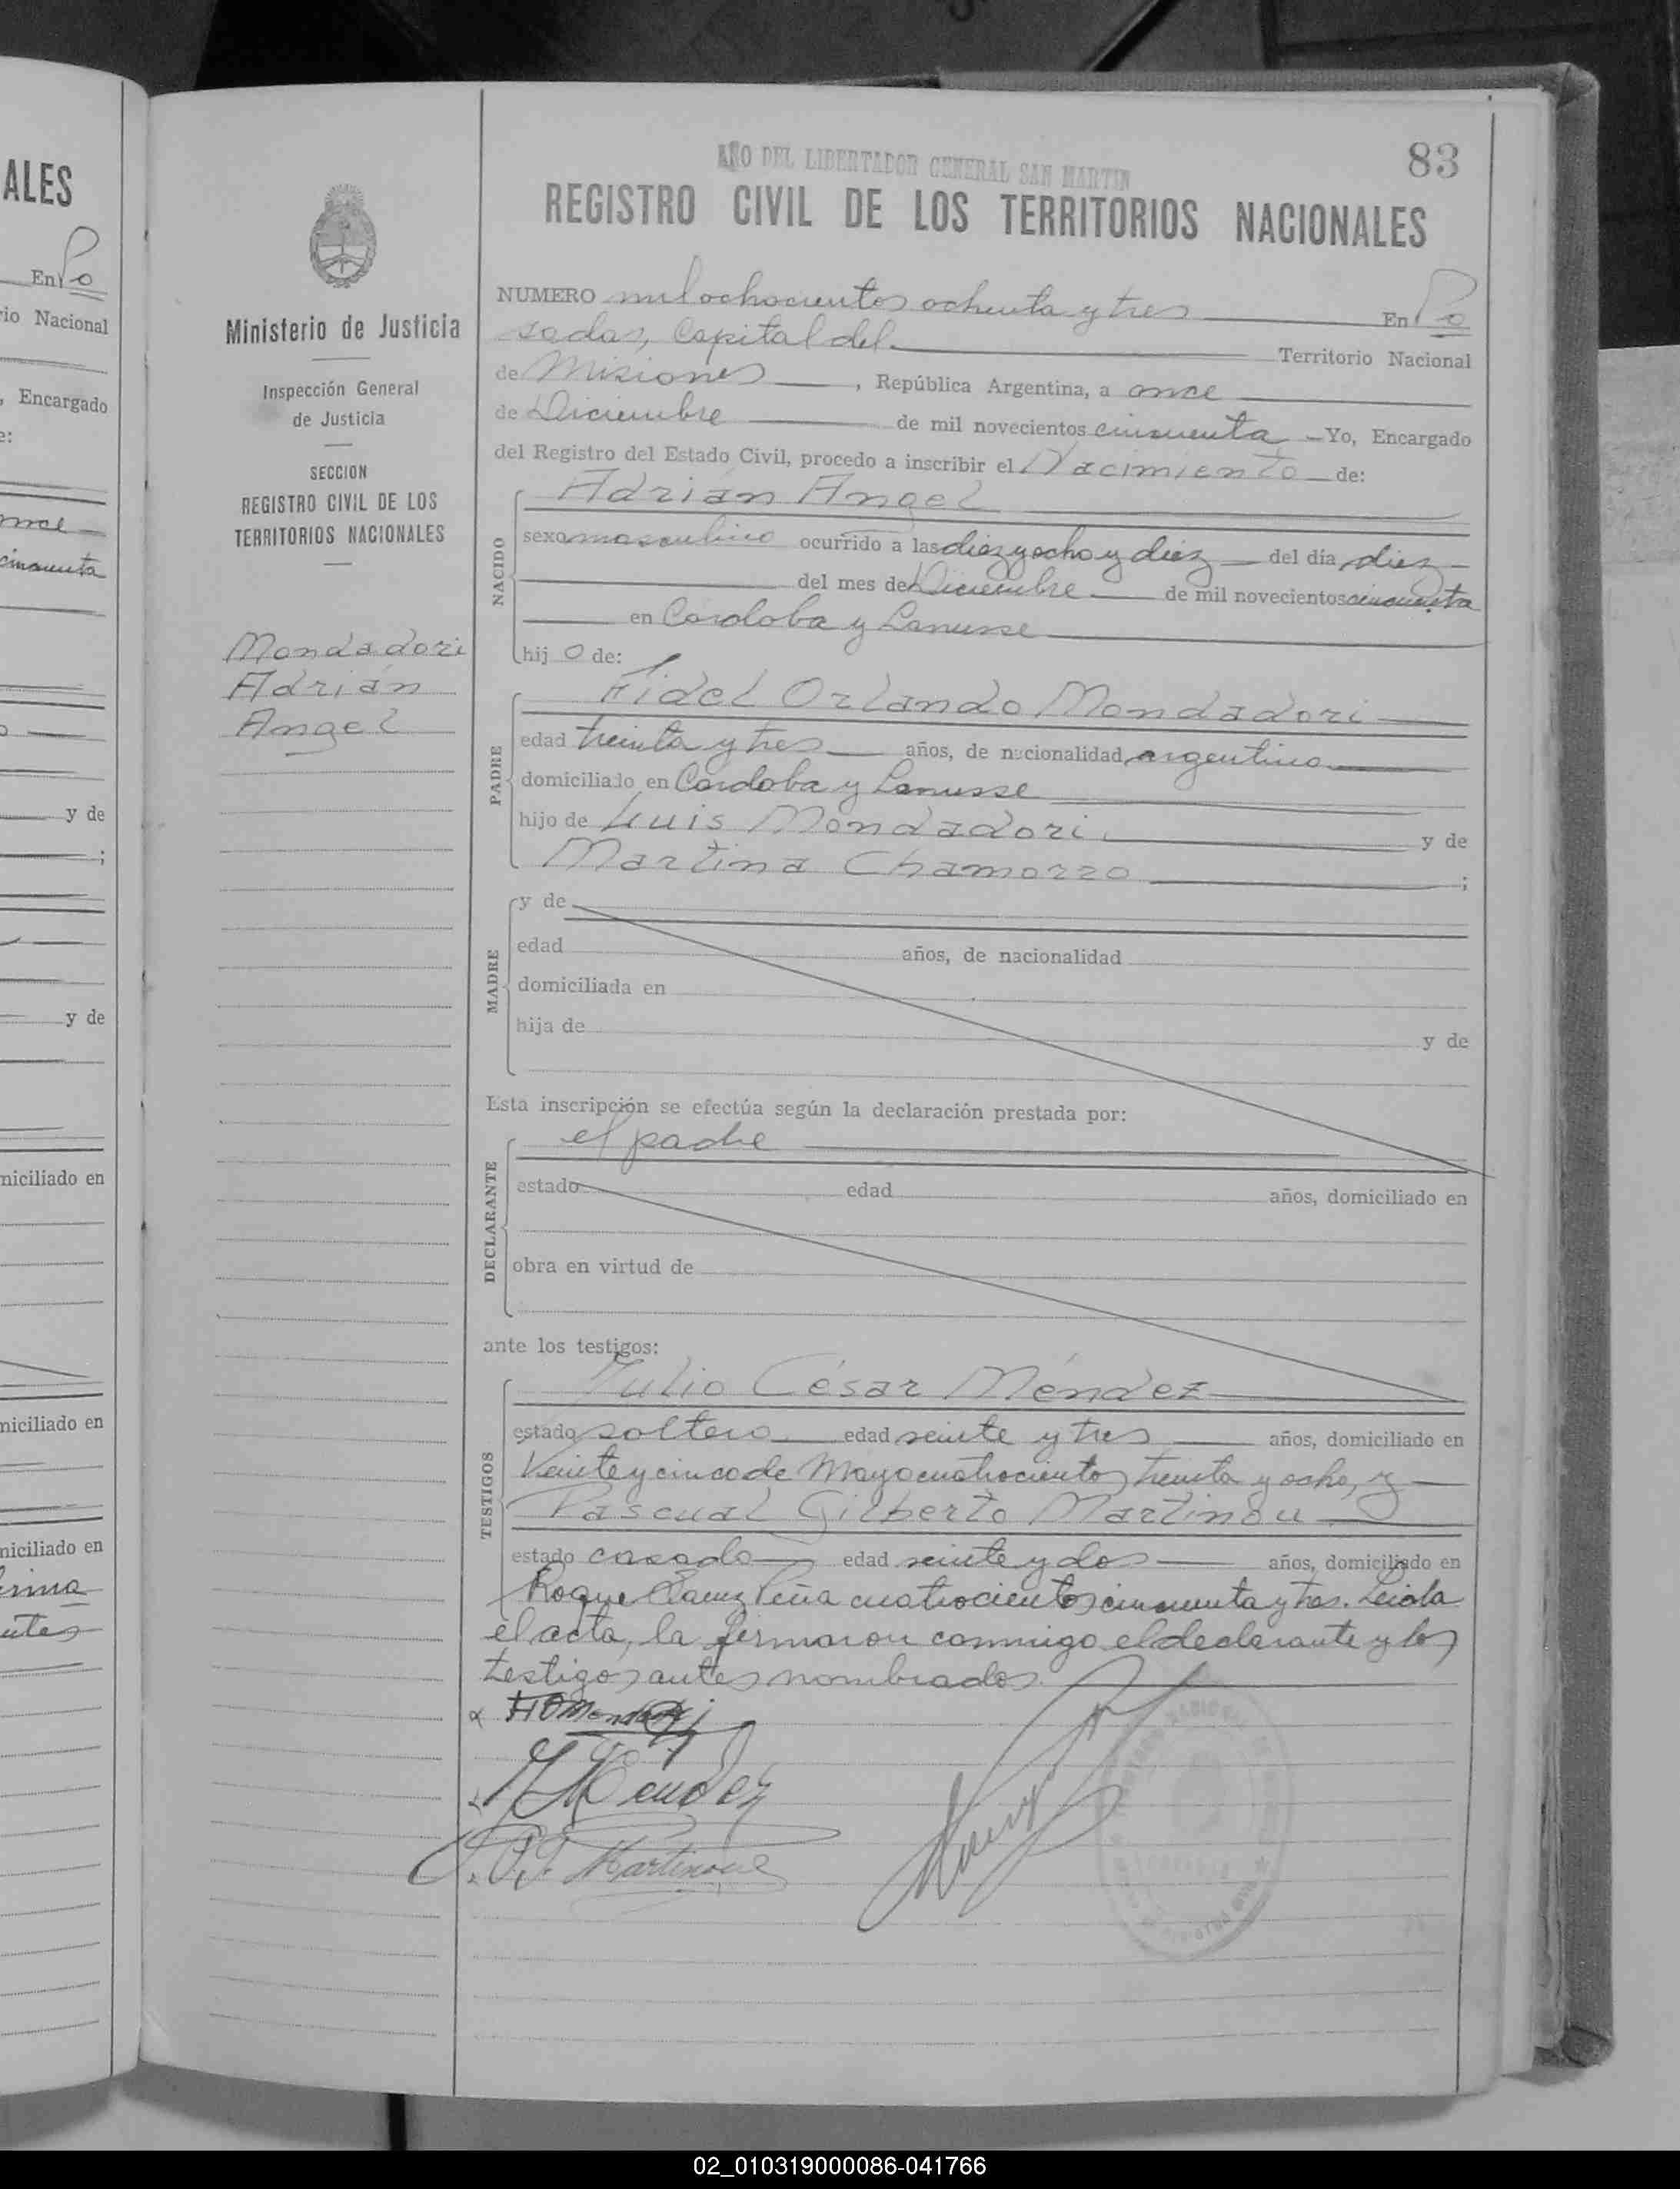 ALES
En Po
rio Nacional
, Encargado
e:
once
cincuenta
y de
;
y de
miciliado en
miciliado en
miciliado en
83
AÑO DEL LIBERTADOR GENERAL SAN MARTIN
REGISTRO CIVIL DE LOS TERRITORIOS NACIONALES
Ministerio de Justicia
Inspección General
de Justicia
SECCION
REGISTRO CIVIL DE LOS
TERRITORIOS NACIONALES
Mondadori
Adrián
Angel
NUMERO mil ochocientos ochenta y tres En Po
sadas, Capital del Territorio Nacional
de Misiones, República Argentina, a once
de Diciembre de mil novecientos cincuenta - Yo, Encargado
del Registro del Estado Civil, procedo a inscribir el Nacimiento de:
Adrián Angel
NACIDO
sexo masculino ocurrido a las diez y ocho y diez del día diez
del mes de Diciembre de mil novecientos cincuenta
en Cordoba y Lanusse
hij o de:
Fidel Orlando Mondadori
PADRE
edad treinta y tres años, de nacionalidad argentino
domiciliado en Cordoba y Lanusse
hijo de Luis Mondadori y de
Martina Chamorro ;
MADRE
y de
edad años, de nacionalidad
domiciliada en
hija de y de
Esta inscripción se efectúa según la declaración prestada por:
el padre
DECLARANTE
estado edad años, domiciliado en
obra en virtud de
ante los testigos:
Julio César Méndez
TESTIGOS
estado soltero edad veinte y tres años, domiciliado en
Veinte y cinco de Mayo cuatrocientos treinta y ocho, y
Pascual Gilberto Martinou
estado casado edad veinte y dos años, domiciliado en
Roque Saenz Peña cuatrocientos cincuenta y tres. Leida
el acta, la firmaron conmigo el declarante y los
testigos antes nombrados.
FOMondadori
JC Mendez
P. G. Martinou
02_010319000086-041766